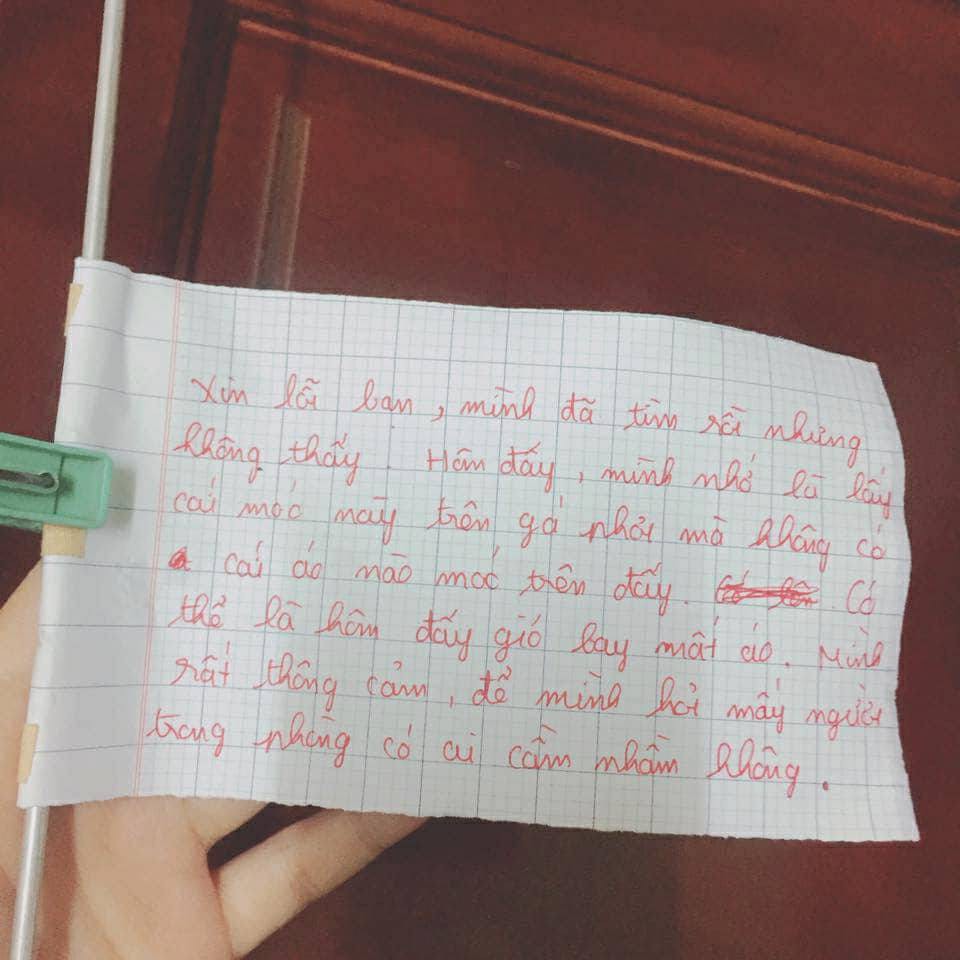 Xin lỗi bạn, mình đã tìm rồi nhưng
không thấy. Hôm đấy, mình nhớ là lấy
cái móc mày trên gá phơi mà không có
cái áo nào móc trên đấy. Có
thể là hôm đấy gió bay mất áo. Mình
rất thông cảm, để mình hỏi mấy người
trong phòng có ai cầm nhầm không.